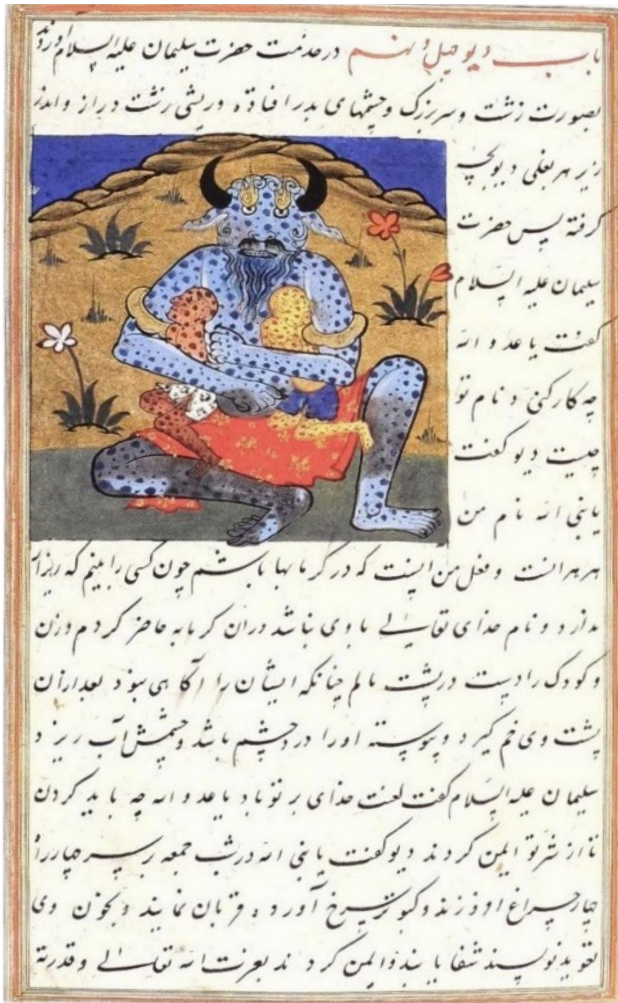 باب دیو چهل و نهم در خدمت حضرت سلیمان علیه السلام آوردند
بصورت زشت و سر بزرک و چشمهای بدر افتاده و ریشی زشت دراز و اندر
زیر هر بغلی دیوبچه
کرفته پس حضرت
سلیمان علیه السلام
کفت یا عدو الله
چه کار کنی و نام تو
چیست دیو کفت
یا نبی الله نام من
است و فعل من اینست که در کرمابها باشم چون کسی را بینم که
ندارد و نام خدای تعالی با وی نباشد در ان کرمابه حاضر کردم و زن
و کودک را دست در پشت مالم چنانکه ایشان را آکاهی نبود بعد ازان
پشت وی خم کیرد و پیوسته اورا درد چشم باشد و چشمش آب ریزد
سلیمان علیه السلام کفت لعنت خدای بر تو باد یا عدو الله چه باید کردن
تا از شر تو ایمن کردند دیو کفت یا نبی الله در شب جمعه بر سر چهار راه
چهار چراغ افروزند و کبوتر سرخ آورده قربان نمایند و بخون وی
تعویذ نویسند شفا یابند و ایمن کردند بعزت الله تعالی و قدرته